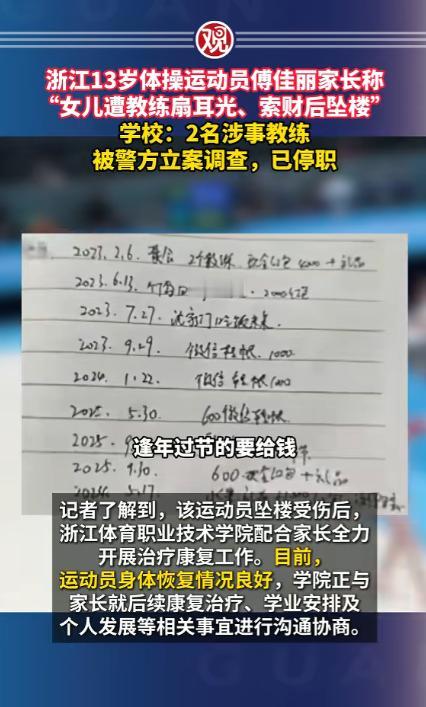 观
浙江13岁体操运动员傅佳丽家长称
“女儿遭教练扇耳光、索财后坠楼”
学校：2名涉事教练
被警方立案调查，已停职
2023.2.6. 聚会 2个教练
2023.6.13. 2000红包
2023. 7.27.
2023. 9.29 微信转帐. 1000
2024. 1.22. 微信转帐
2025. 5.30. 600微信转帐
2025.
逢年过节的要给钱
2025. 9.10. 600 现金红包+礼品
5.17.
记者了解到，该运动员坠楼受伤后，
浙江体育职业技术学院配合家长全力
开展治疗康复工作。目前，
运动员身体恢复情况良好，学院正与
家长就后续康复治疗、学业安排及
个人发展等相关事宜进行沟通协商。
GUAN